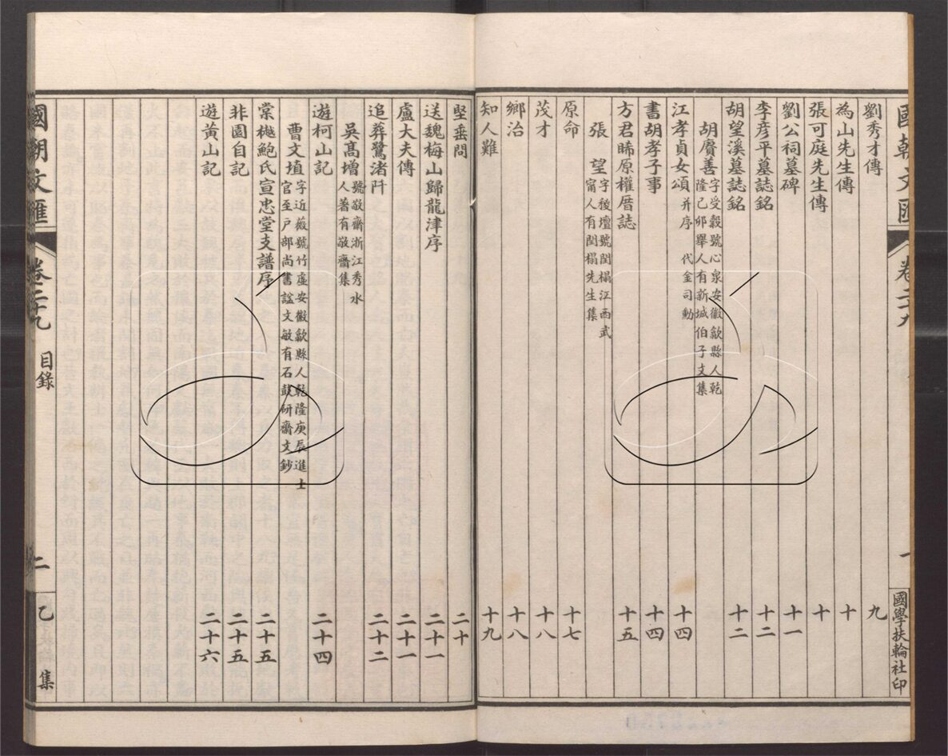 國朝文匯
卷二十九
一
國學扶輪社印
劉秀才傳 九
為山先生傳 十
張可庭先生傳 十
劉公祠墓碑 十一
李彥平墓誌銘 十二
胡望溪墓誌銘 十二
胡賡善 字受穀號心泉安徽歙縣人乾
隆己卯舉人有新城伯子文集
江孝貞女頌并序 代金司勳 十四
書胡孝子事 十四
方君晞原權厝誌 十五
張望 字稷壇號閏榻江西武
甯人有閏榻先生集
原命 十七
茂才 十八
鄉治 十八
知人難 十九
堅垂問 二十
送魏梅山歸龍津序 二十一
盧大夫傳 二十一
追葬鷺渚阡 二十二
吳高增 號敬齋浙江秀水
人著有敬齋集
遊柯山記 二十四
曹文埴 字近薇號竹虛安徽歙縣人乾隆庚辰進士
官至戶部尚書諡文敏有石鼓研齋文鈔
棠樾鮑氏宣忠堂支譜序 二十五
非園自記 二十五
遊黃山記 二十六
國朝文匯
卷二十九
目錄
二
乙
集